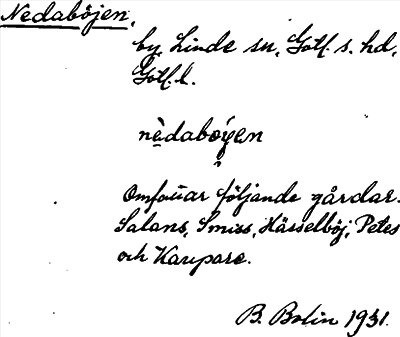 Nedaböjen,
by, Linde sn, Gotl. s. hd,
Gotl. l.
nèdabǫyen
Omfattar följande gårdar.
Salans, Smiss, Hässelböj, Petes
och Kaupare.
B. Bolin 1931.